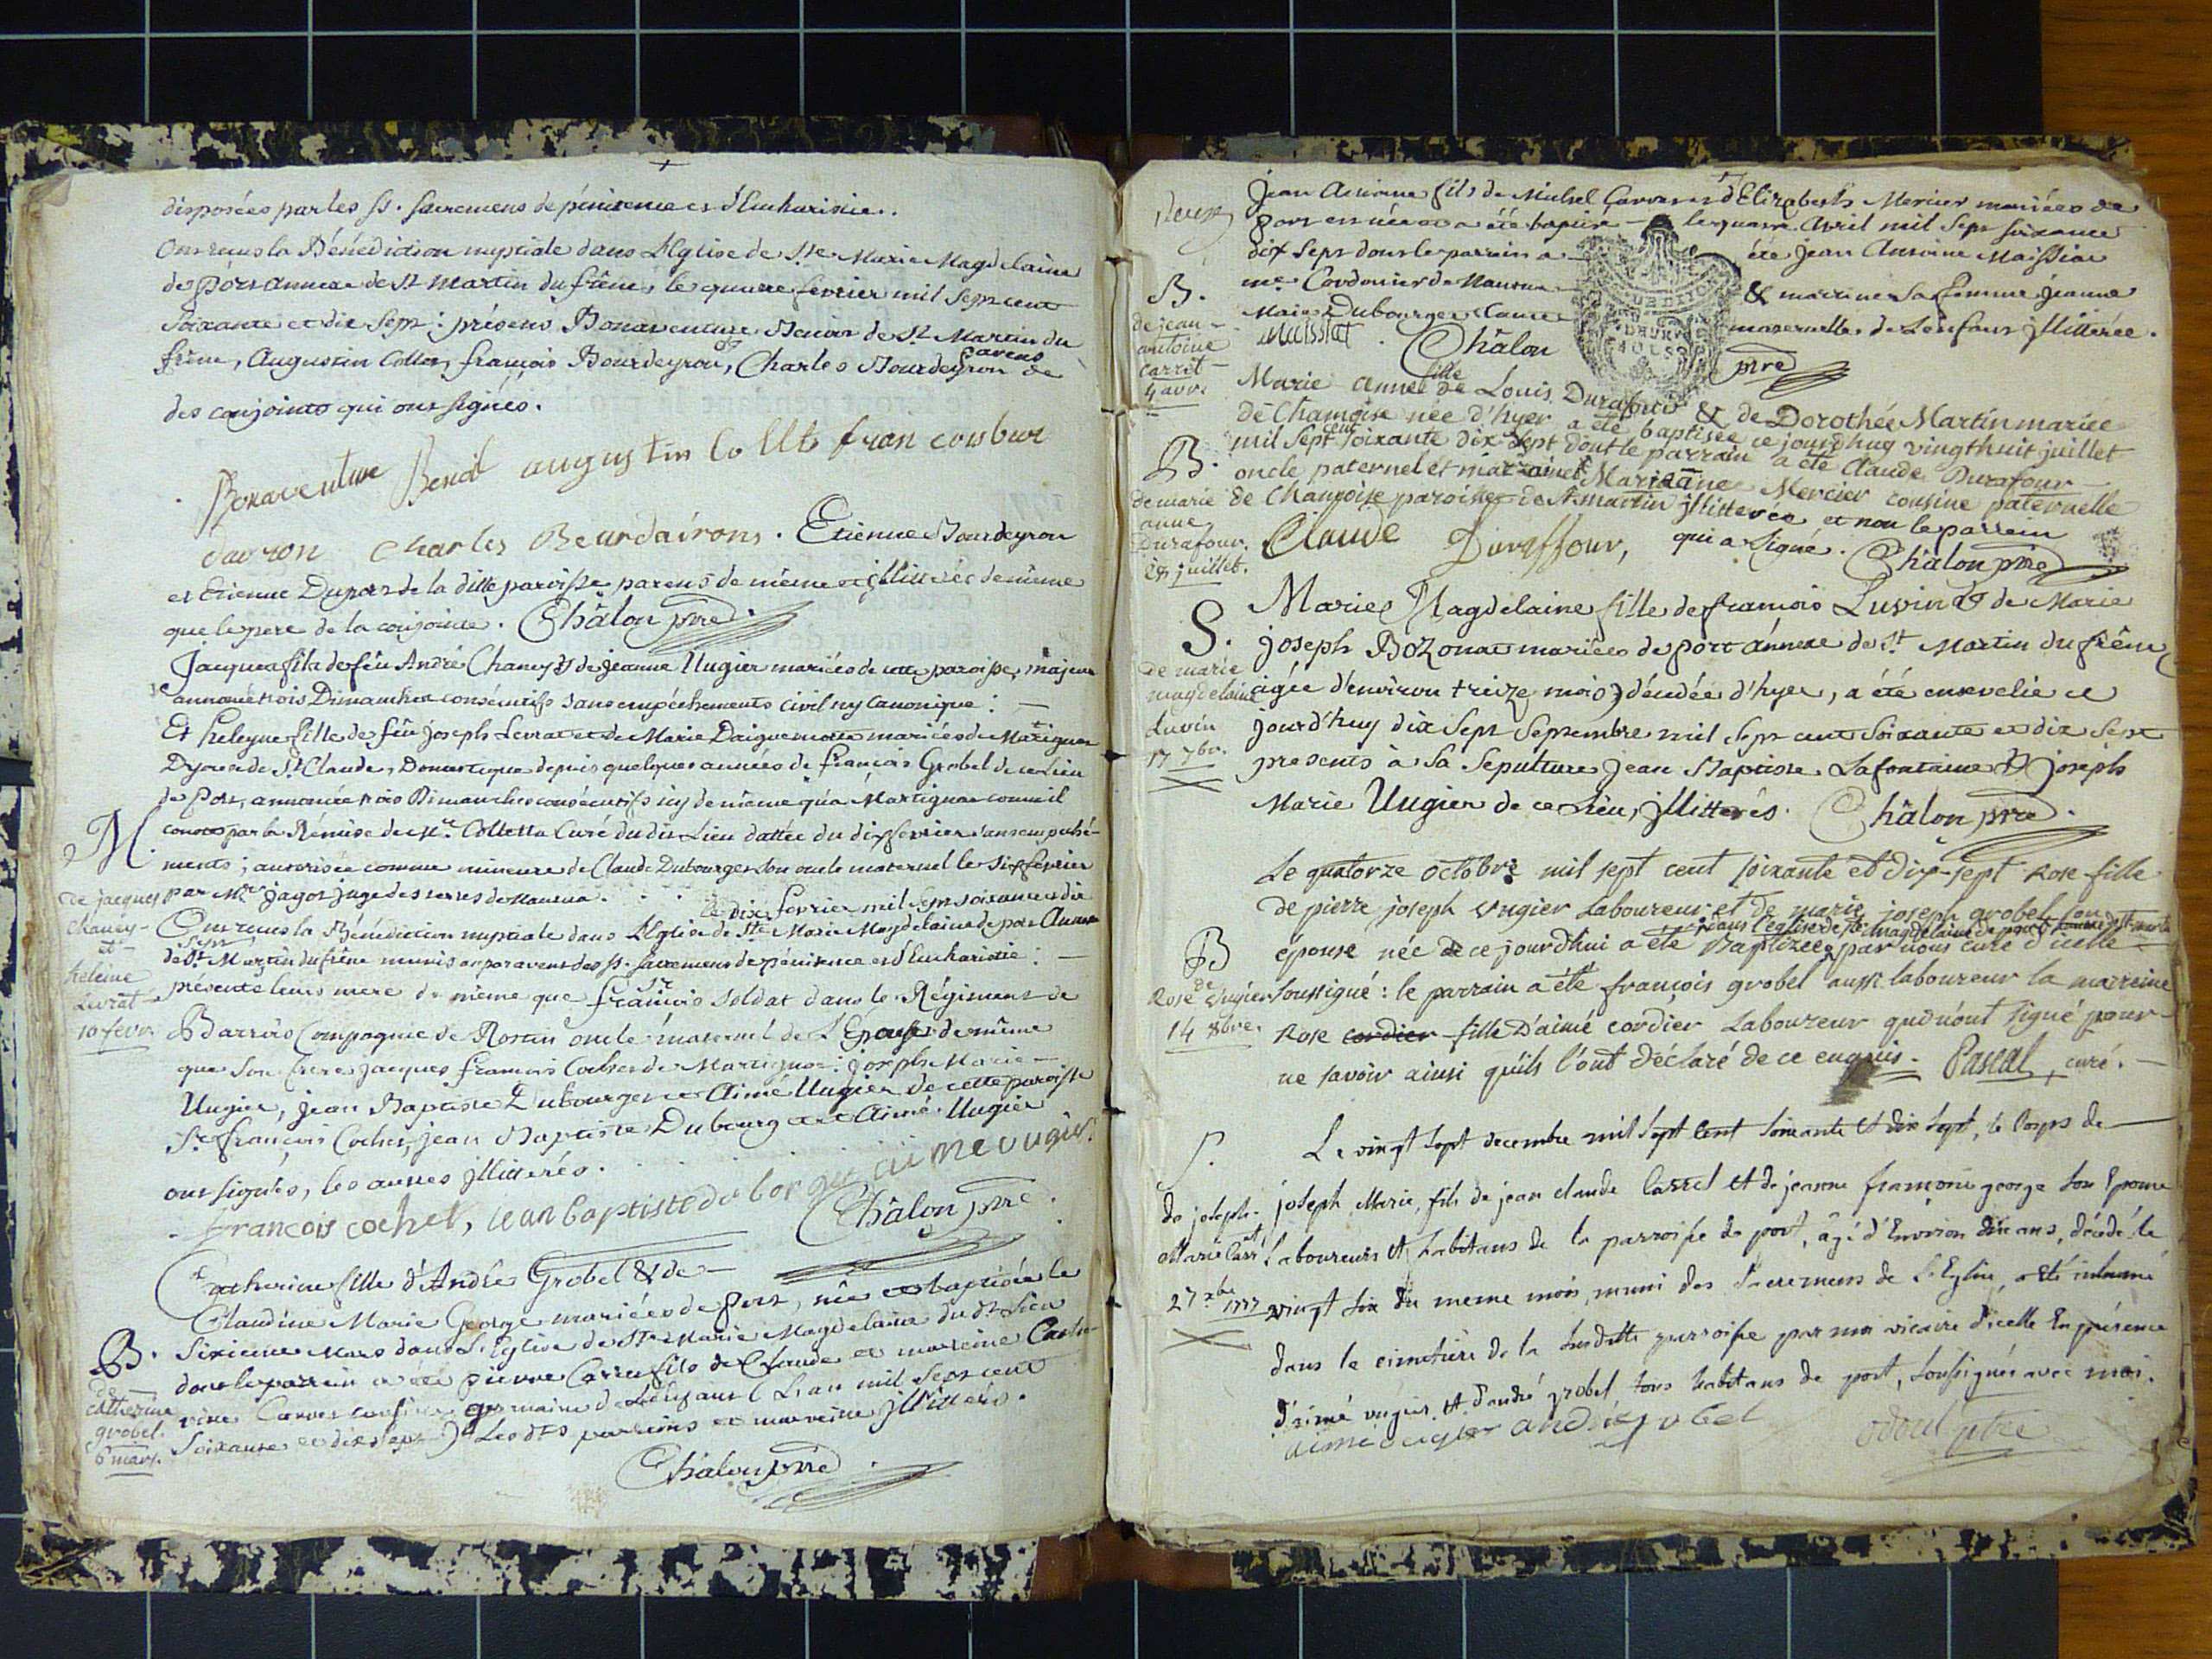 disposées par les SS. sacremens de pénitence et d'Eucharistie.
Ont reçus la Bénédiction nuptiale dans L'Eglise de Ste Marie Magdelaine
de Port annexe de St Martin du frêne, le quatre fevrier mil Sept cent
Soixante et dix Sept : présens Bonaventure Benoit de St Martin du
frêne, Augustin Collet, françois Bourdeyron, & Charles Bourdeyron parens de
des conjoints qui ont signés.
Bonaventure Benoit augustin Collet francois bur
dairon Charles Beurdairons. Etienne Bourdeyron
et Etienne Duport de la ditte paroisse parens de même et jllitterés de même
que le pere de la conjointe. Châlon ptre.
Jacques fils de feu André Chaney & de jeanne Uugier mariés de cette paroisse, majeur
annoncé trois Dimanches consécutifs sans empêchements civil ny Canonique :
Et heleyne fille de feu joseph Levrat et de Marie Daiguemorte mariés de Martignat
Dyocese de St Claude, Domestique depuis quelques années de françois Grobel de ce Lieu
de Port, annoncée trois Dimanches consécutifs icy de même qu'a Martignat comme il
conste par la Rémise de Mre Colletta Curé du dit Lieu dattée du dix fevrier sans empêche-
ments ; autorisée comme mineure de Claude Dubourget son oncle maternel le six fevrier
par Mre jagot juge des terres de Nantua. . . . Le dix fevrier mil Sept soixante et dix
Sept
Ont reçus la Bénédiction nuptiale dans L'Eglise de Ste Marie Magdelaine de port Annexe
de St Martin du frêne munis auparavent des SS. sacremens de pénitence et d'Eucharistie :
présente leurs mere de même que Sr françois soldat dans le Régiment de
Barrois Compagnie de Rostin oncle maternel de L'Epouse de même
que son frere jacques francois Cochet de Martignat : joseph Marie
Uugier, jean Baptiste Dubourget et Aimé Uugier de cette paroisse
Sr françois Cochet, jean Baptiste Dubourg et Aimé Uugier
ont signés, les autres jllitterés.
francois cochet, jean baptiste duborget aime vugier
Châlon ptre.
M.
de jacques
chaney
et
helene
Levrat
10 fevr.
Catherine fille d'André Grobel & de
Claudine Marie George mariés de port, née et baptisée le
Sixieme Mars dans L'Eglise de Ste Marie Magdelaine du dt Lieu
dont le parrein a été pierre Carret fils de Claude et marreine Cathe-
rine Carret cousine germaine de L'enfant L'an mil Sept cent
Soixante et dix sept) Les dts parreins et marreine jllitterés.
Châlon ptre.
B.
de
catherine
grobel.
6 mars.
Jean Antoine fils de Michel Carret & d'Elizabeth Mercier mariés de
Port est né et a été baptisé le quatre Avril mil Sept soixante
dix Sept dont le parrein a été Jean Antoine Maissiat
me Cordonier de Nantua & marrine sa femme jeanne
Marie Dubourget tante maternelle de L'enfant jllitterée.
Maissiat. Châlon ptre
B.
de jean
antoine
carret
4 avr.
Marie Anne fille de Louis Durafour & de Dorothée Martin mariée
de Chamoise née d'hyer a été baptisée ce jourdhuy vingthuit juillet
mil Sept cent soixante dix Sept dont le parrain a été Claude Durafour
oncle paternel et marraine Marianne Mercier cousine paternelle
de Chamoise paroisse de St martin jllitterée et non le parrein
qui a signé. Châlon ptre
Claude Duraffour,
B.
de marie
anne
Durafour.
28 juillet.
Marie Magdelaine fille de françois Luvin & de Marie
joseph Bozonat mariés de port annexe de St Martin du frêne
agée d'environ treize mois, décedée d'hyer, a été ensevelie ce
jourd'huy dix Sept Septembre mil Sept cent Soixante et dix Sept
presents à sa Sepulture jean Baptiste Lafontaine & joseph
Marie Uugier de ce Lieu, jllitterés. Châlon ptre.
S.
de marie
magdelaine
Luvin
17 7br.
Le quatorze octobre mil sept cent soixante et dix-sept Rose fille
de pierre joseph vugier Laboureur et de marie joseph grobel son
épouse née de ce jourdhui a été Baptizée dans l'église de ste magdelaine de port par nous curé d'icelle
soussigné : le parrain a été françois grobel aussi laboureur la marreine
Rose cordier fille D'aimé cordier Laboureur qui n'ont signé pour
ne savoir ainsi qu'ils l'ont déclaré de ce enquis. Pascal, curé.
B
de
Rose vugier
14 8bre.
Le vingt sept decembre mil sept cent soixante et dix sept, le corps de
joseph Marie, fils de jean claude Carret et de jeanne françoise george son Epouse
Laboureurs et habitans de la parroisse de port, âgé d'Environ dix ans, décédé le
vingt six du meme mois, muni des Sacremens de L'Eglise, a été inhumé
dans le cimetière de la susditte parroisse par moi vicaire d'icelle En présence
d'aimé vugier et d'andré grobel tous habitans de port, soussignés avec moi.
aimé vugier andré grobel odoul ptre
S.
de joseph
Marie Carret
27 xbre
1777